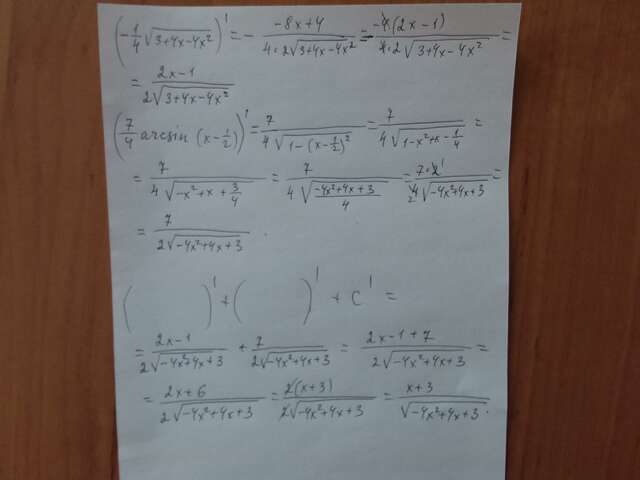 (-1/4 √(3+4x-4x²))' = - (-8x+4)/(4·2√(3+4x-4x²)) = - (-4·(2x-1))/(4·2√(3+4x-4x²)) =
= (2x-1)/(2√(3+4x-4x²))
(7/4 arcsin (x-1/2))' = 7/(4√(1-(x-1/2)²)) = 7/(4√(1-x²+x-1/4)) =
= 7/(4√(-x²+x+3/4)) = 7/(4√((-4x²+4x+3)/4)) = (7·2)/(4√(-4x²+4x+3)) =
= 7/(2√(-4x²+4x+3)).
( )' + ( )' + C' =
= (2x-1)/(2√(-4x²+4x+3)) + 7/(2√(-4x²+4x+3)) = (2x-1+7)/(2√(-4x²+4x+3)) =
= (2x+6)/(2√(-4x²+4x+3)) = (2(x+3))/(2√(-4x²+4x+3)) = (x+3)/(√(-4x²+4x+3)).